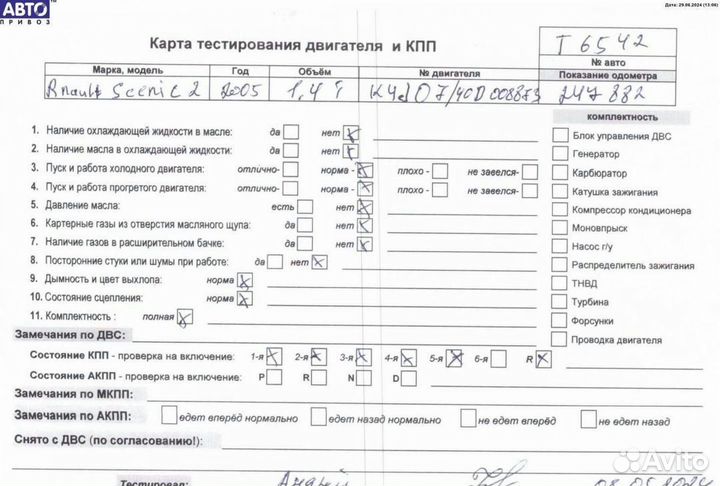 АВТО
ПРИВОЗ
Дата: 29.06.2024 (13:06)
Карта тестирования двигателя и КПП
Т 6542
№ авто
Марка, модель Год Объём № двигателя Показание одометра
Renault Scenic 2 2005 1,4 i K4J 07/40D008873 247 882
комплектность
1. Наличие охлаждающей жидкости в масле: да нет X
Блок управления ДВС
2. Наличие масла в охлаждающей жидкости: да нет X
Генератор
3. Пуск и работа холодного двигателя: отлично- норма - X плохо - не завелся-
Карбюратор
4. Пуск и работа прогретого двигателя: отлично- норма - X плохо - не завелся-
Катушка зажигания
5. Давление масла: есть нет X
Компрессор кондиционера
6. Картерные газы из отверстия масляного щупа: да нет X
Моновпрыск
7. Наличие газов в расширительном бачке: да нет X
Насос г/у
8. Посторонние стуки или шумы при работе: да нет X
Распределитель зажигания
9. Дымность и цвет выхлопа: норма X
ТНВД
10. Состояние сцепления: норма X
Турбина
11. Комплектность : полная X
Форсунки
Замечания по ДВС:
Проводка двигателя
Состояние КПП - проверка на включение: 1-я X 2-я X 3-я X 4-я X 5-я X 6-я R X
Состояние АКПП - проверка на включение: P R N D
Замечания по МКПП:
Замечания по АКПП: едет вперёд нормально едет назад нормально не едет вперёд не едет назад
Снято с ДВС (по согласованию!):
Тестировал: Андрей
Avito